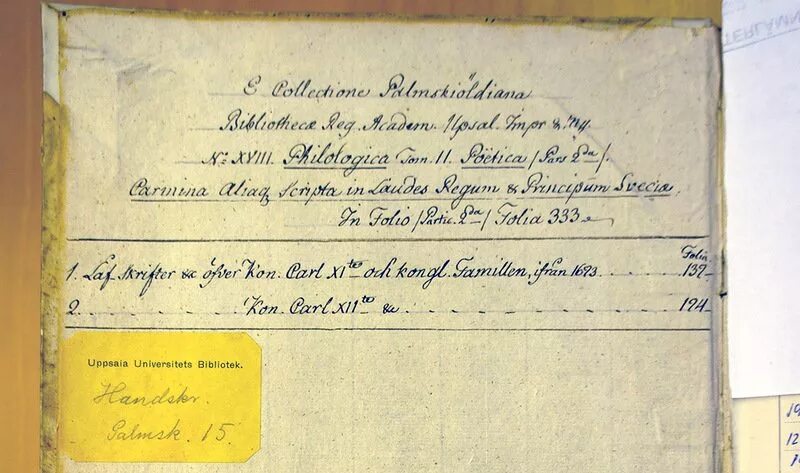 E Collectione Palmskiöldiana
Bibliothecæ Reg. Academ. Upsal. Impr &
No. XVIII. Philologica Tom. 11. Poëtica /Pars 2da/.
Carmina Aliaq Scripta in Laudes Regum & Principum Sveciæ,
In Folio /Partic. 2da/ Folia 333
Folia.
1. Låf skrifter &c öfver Kon. Carl XIte och kongl. Famillen, ifrån 1693. 139.
2. Kon. Carl XIIte &c 194.
Uppsala Universitets Bibliotek.
Handskr.
Palmsk. 15.
19
12